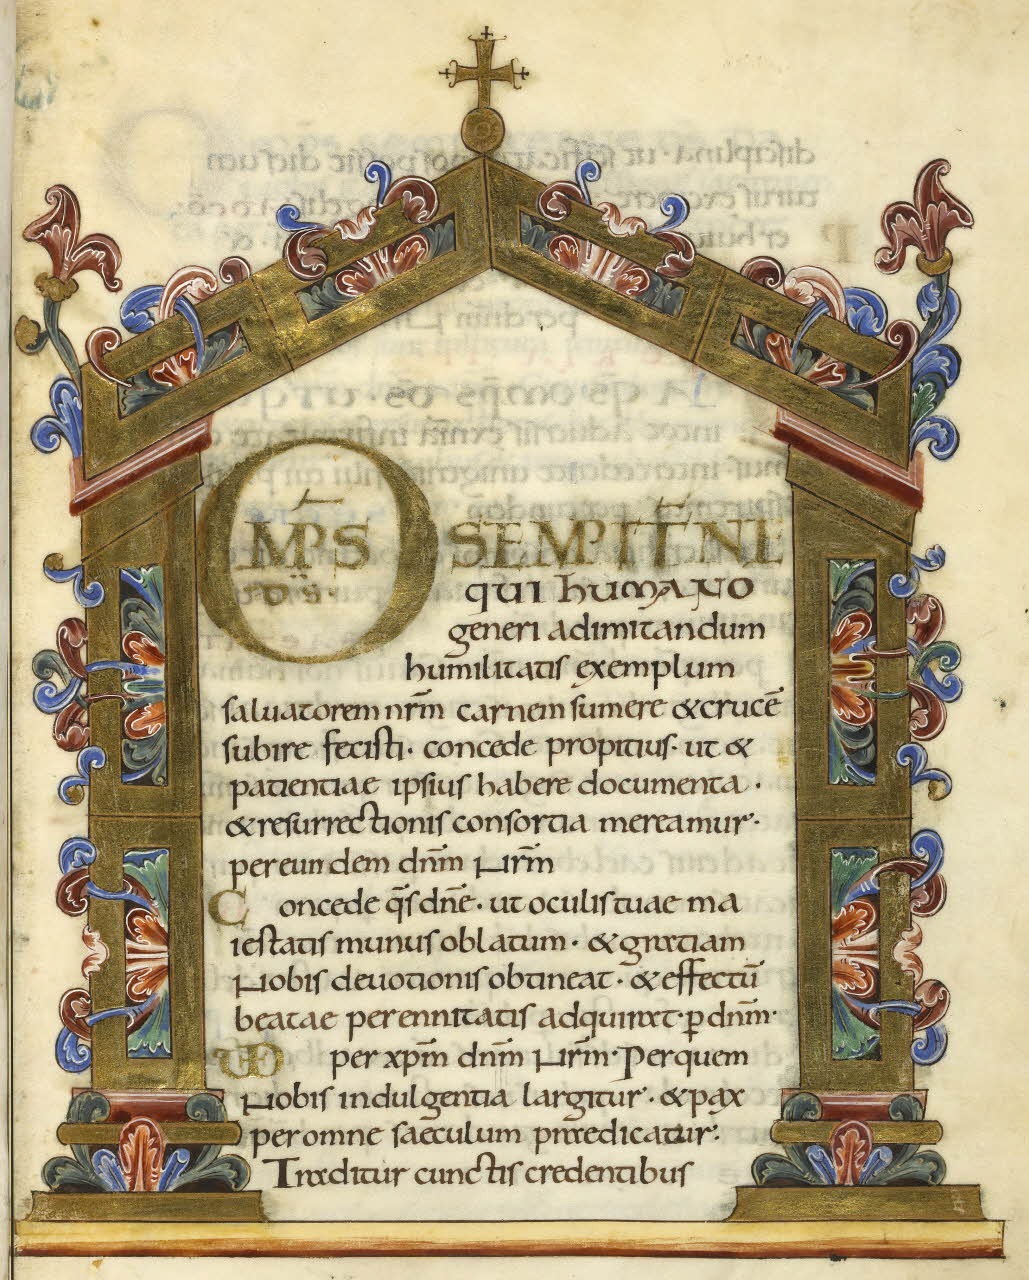 OMP̅S SEMPIT̅NE
D̅S · QUI hUMANO
generi adimitandum
humilitatis exemplum
saluatorem nr̅m carnem sumere &crucē
subire fecisti · concede propitius · ut &
patientiae ipsius habere documenta ·
&resurrectionis consortia mereamur ·
per eundem dn̅m Nr̅m
Concede qs̅ dn̅e · ut oculis tuae ma
iestatis munus oblatum · & gratiam
Nobis deuotionis obtineat · & effectū
beatae perennitatis adquirat · ꝑ dn̅m ·
UD per xp̅m dn̅m Nr̅m · Per quem
Nobis indulgentia largitur · & pax
per omne saeculum praedicatur ·
Traditur cunctis credentibus